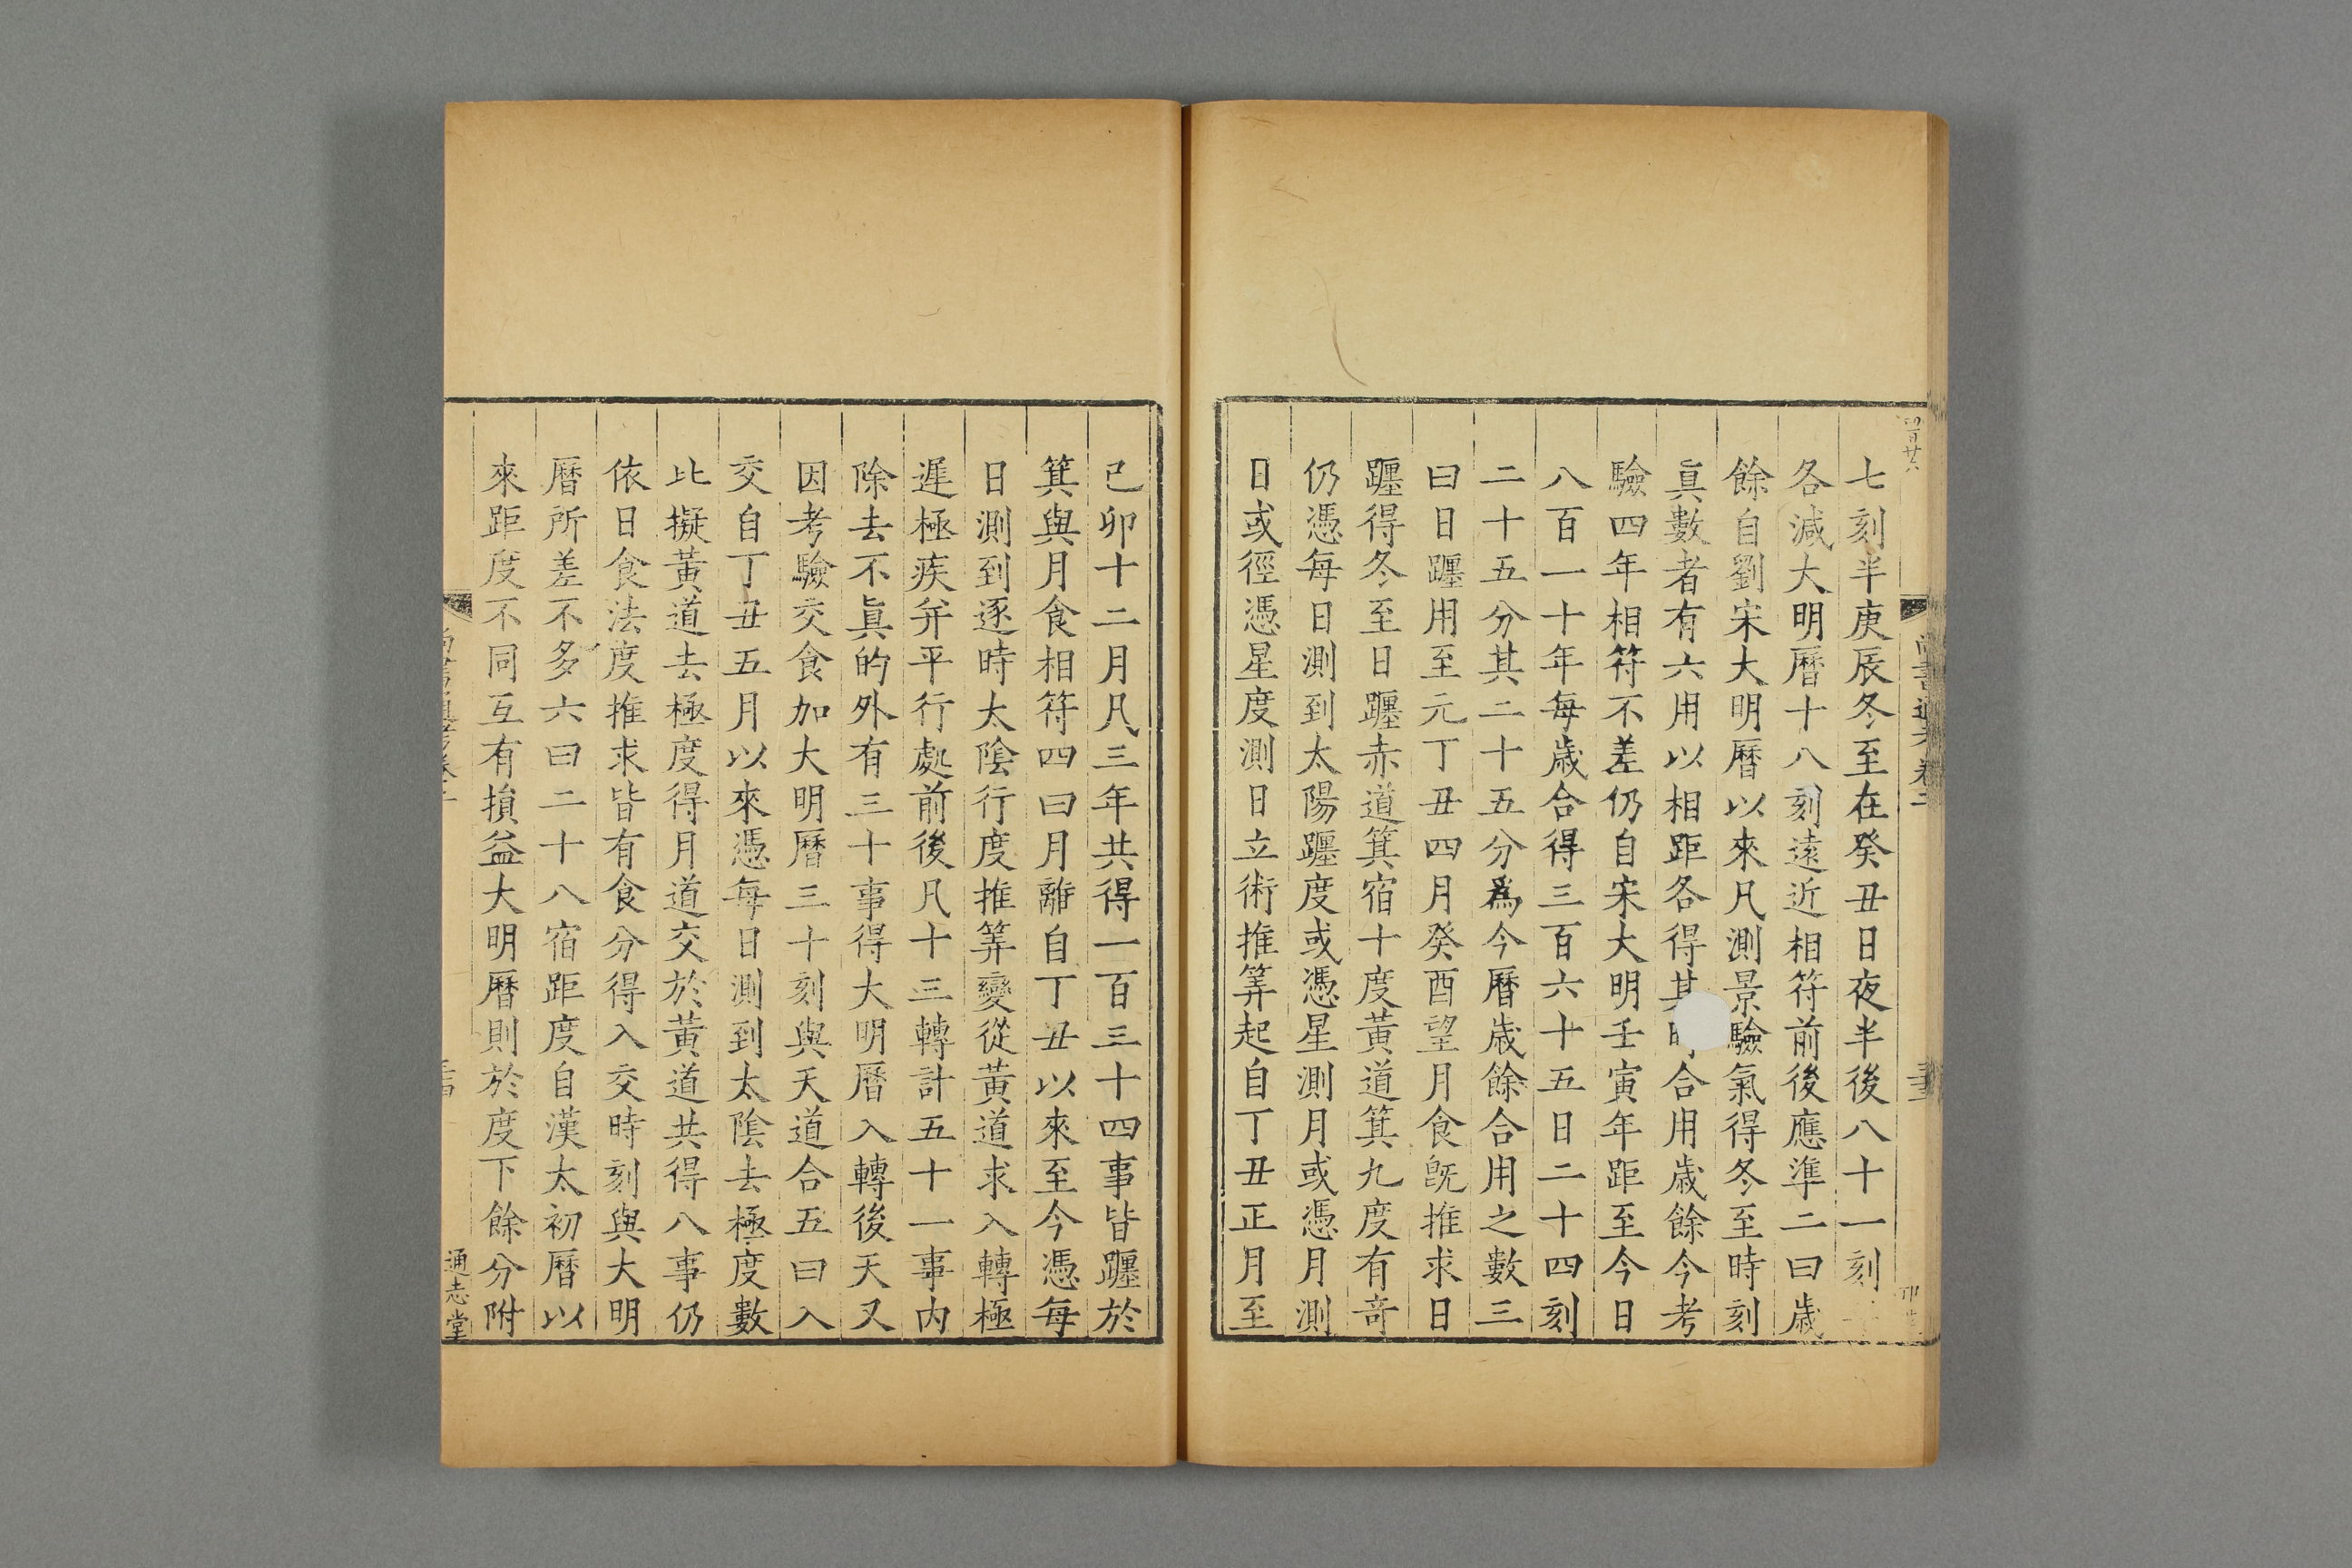 七刻半庚辰冬至在癸丑日夜半後八十一刻
各減大明曆十八刻遠近相符前後應準二曰歳
餘自劉宋大明曆以來凡測景驗氣得冬至時刻
眞數者有六用以相距各得其時合用歳餘今考
驗四年相符不差仍自宋大明壬寅年距至今日
八百一十年每歳合得三百六十五日二十四刻
二十五分其二十五分爲今曆歳餘合用之數三
曰日躔用至元丁丑四月癸酉望月食旣推求日
躔得冬至日躔赤道箕宿十度黃道箕九度有竒
仍憑每日測到太陽躔度或憑星測月或憑月測
日或徑憑星度測日立術推筭起自丁丑正月至
己卯十二月凡三年共得一百三十四事皆躔於
箕與月食相符四曰月離自丁丑以來至今憑每
日測到逐時太陰行度推筭變從黃道求入轉極
遲極疾幷平行處前後凡十三轉計五十一事內
除去不眞的外有三十事得大明曆入轉後天又
因考驗交食加大明曆三十刻與天道合五曰入
交自丁丑五月以來憑每日測到太陰去極度數
比擬黃道去極度得月道交於黃道共得八事仍
依日食法度推求皆有食分得入交時刻與大明
曆所差不多六曰二十八宿距度自漢太初曆以
來距度不同互有損益大明曆則於度下餘分附
通志堂